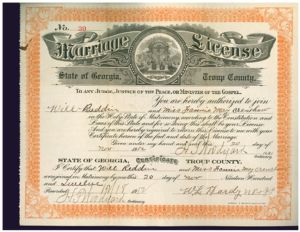 No. 30
Marriage License
State of Georgia, Troup County.
To any Judge, Justice of the Peace, or Minister of the Gospel.
You are hereby authorized to join
Will Redden and Miss Fannie May Crenshaw
in the Holy State of Matrimony, according to the Constitution and
Laws of this State, and for so doing this shall be your License.
And you are hereby required to return this License to me with your
Certificate hereon of the fact and date of this Marriage.
Given under my hand and seal this 20 day of
Nov
STATE OF GEORGIA, Certificate TROUP COUNTY.
I Certify that Will Redden and Miss Fannie May Crenshaw
were joined in Matrimony by me this 20 day of Nov Nineteen Hundred
and Twelve
Recorded
W. L. Hardy